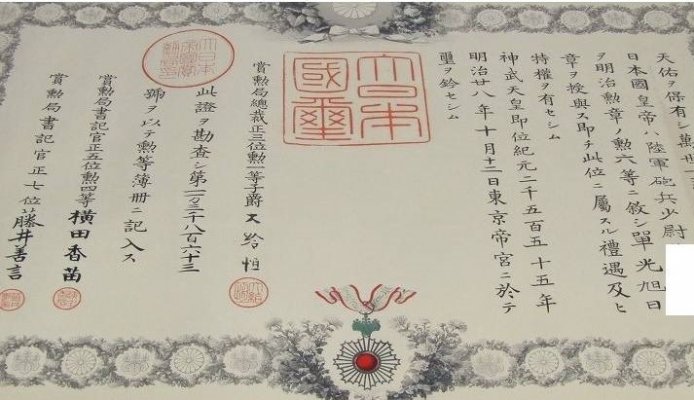 天佑ヲ保有シ萬世一
日本國皇帝ハ陸軍砲兵少尉
ヲ明治勲章ノ勲六等ニ敘シ單光旭日
章ヲ授與ス即チ此位ニ屬スル禮遇及ヒ
特權ヲ有セシム
神武天皇即位紀元二千五百五十五年
明治廿八年十月十二日東京帝宮ニ於テ
璽ヲ鈐セシム
大日本
國璽
賞勲局總裁正三位勲一等子爵大給恒
此證ヲ勘査シ第二万三千八百六十三
號ヲ以テ勲等簿册ニ記入ス
賞勲局書記官正五位勲四等橫田香苗
賞勲局書記官正七位藤井善言